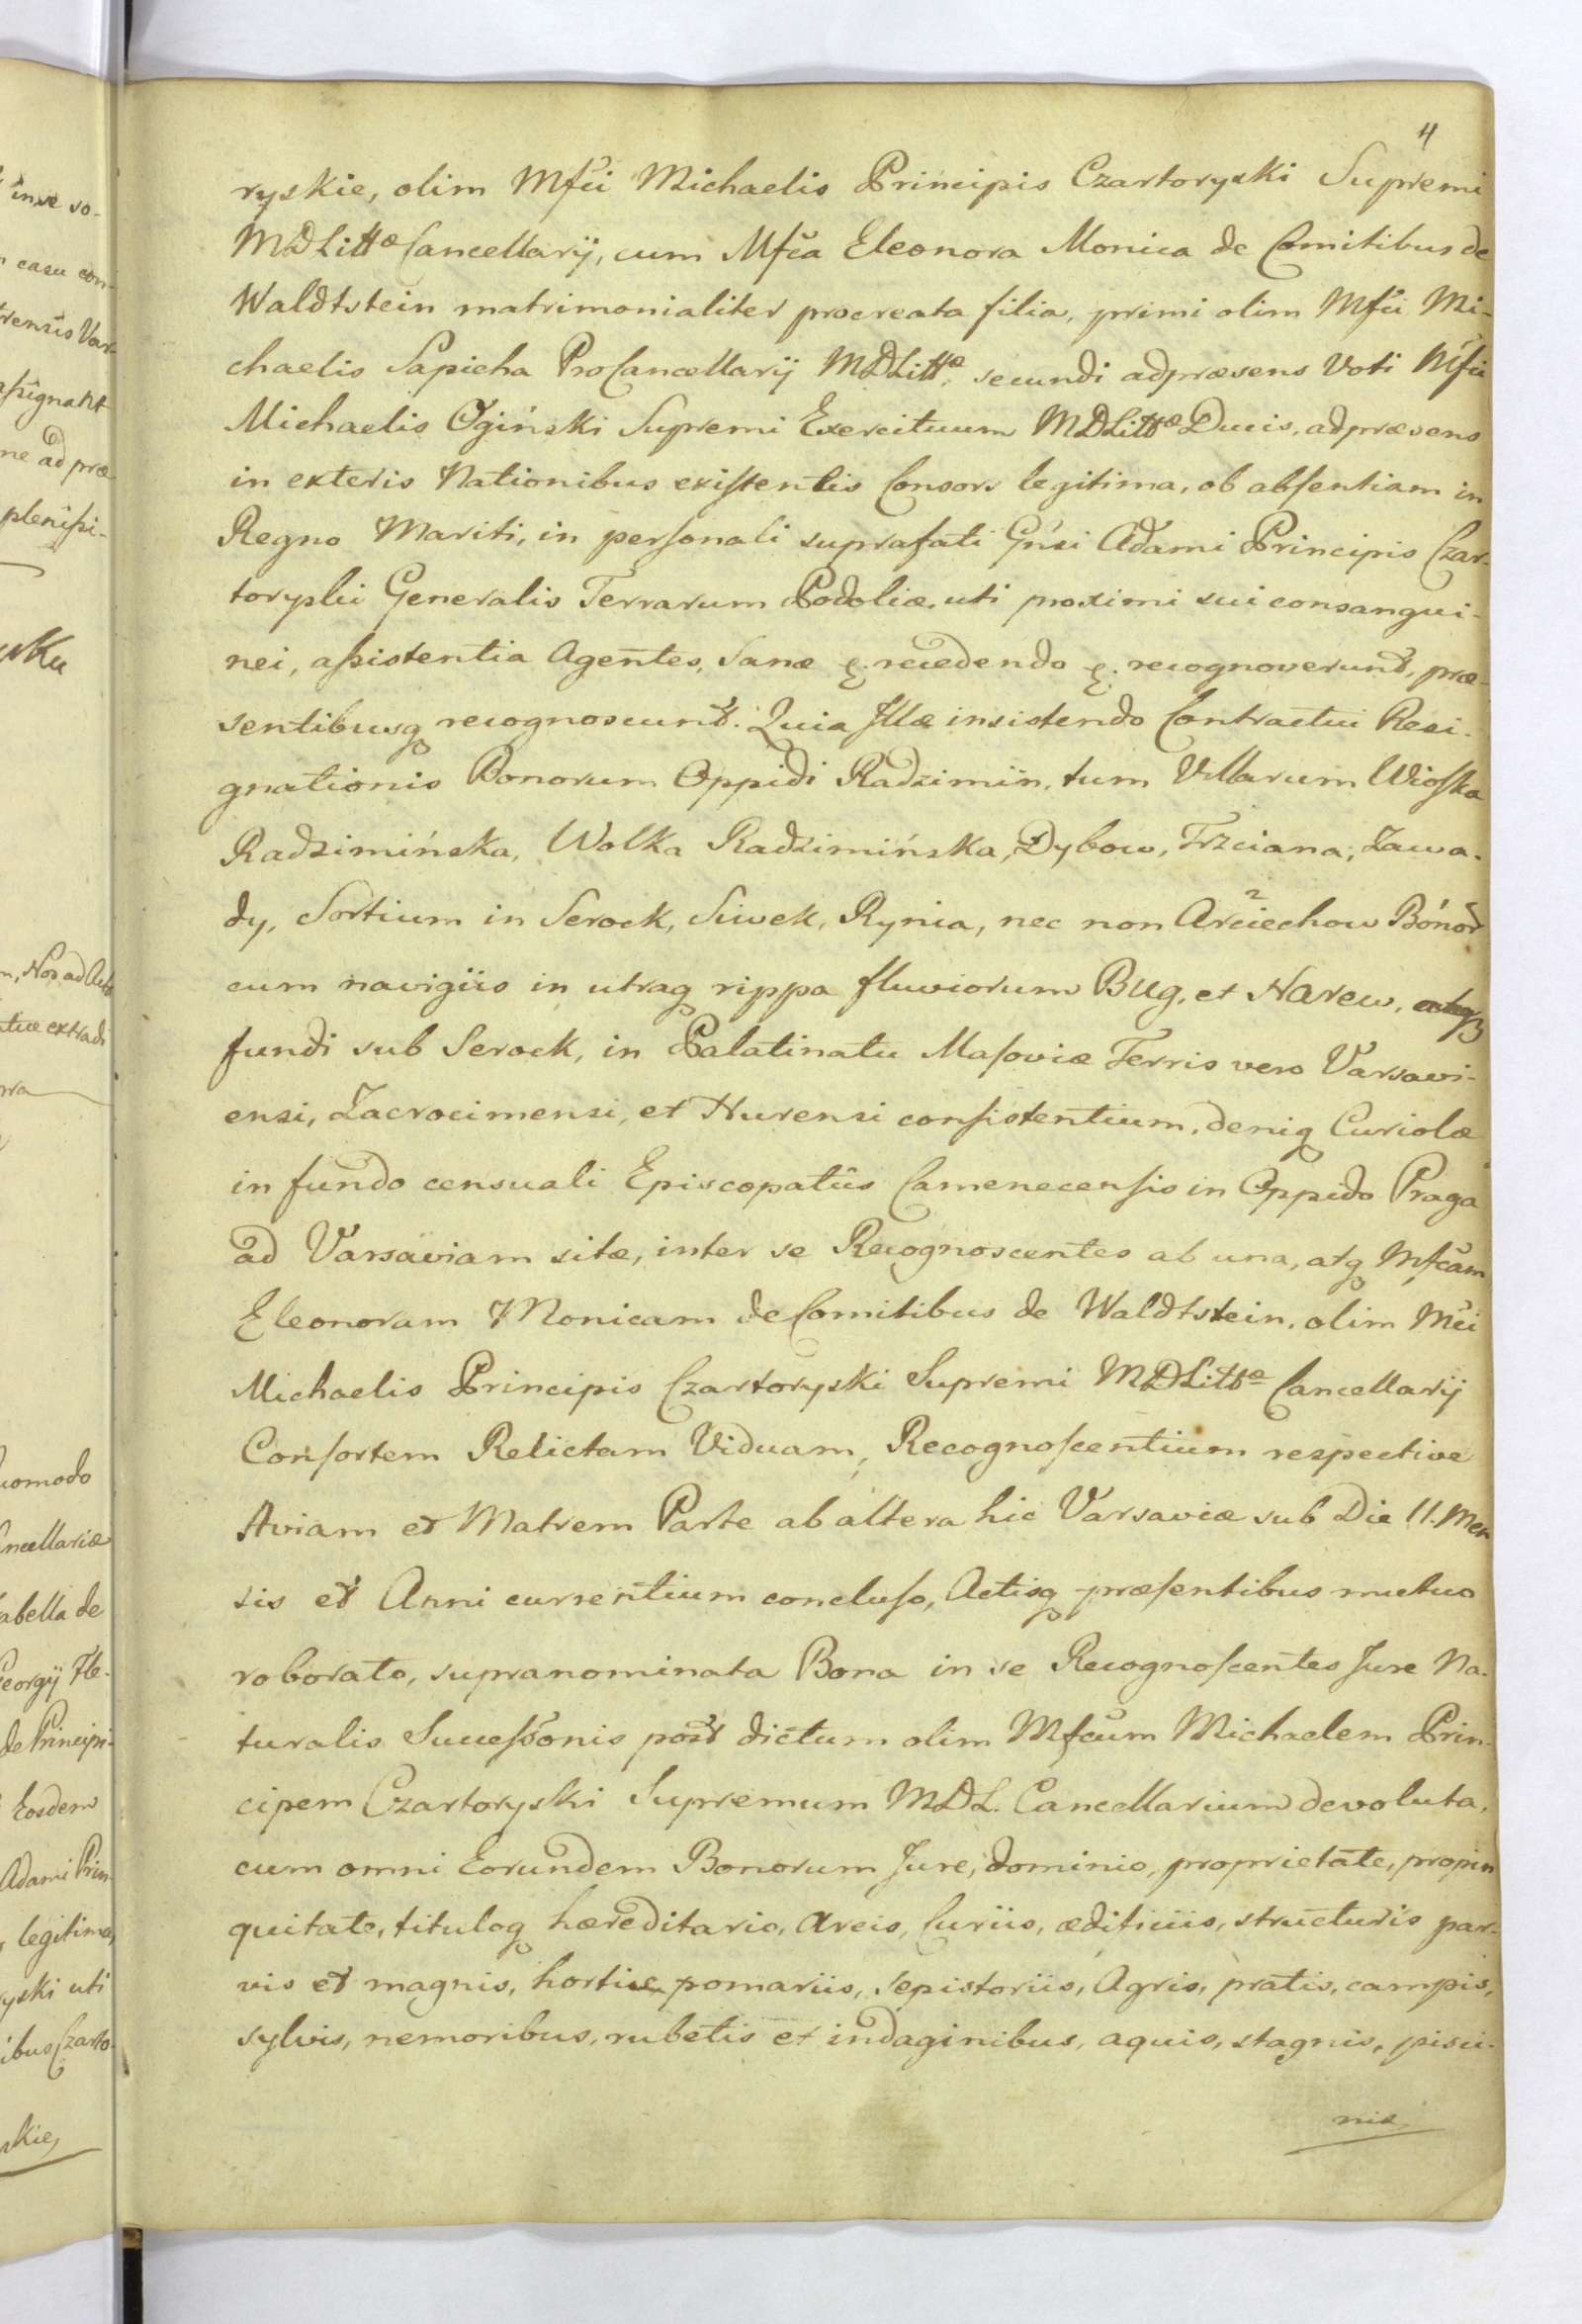 4
ryskie, olim Mfci Michaelis Principis Czartoryski Supremi
MDLittæ Cancellarij, cum Mfca Eleonora Monica de Comitibus de
Waldtstein matrimonialiter procreata filia, primi olim Mfci Mi-
chaelis Sapieha ProCancellarij MDLittæ, secundi adpræsens Voti Mfci
Michaelis Ogiński Supremi Exercituum MDLittæ Ducis, adpræsens
in exteris Nationibus existentis Consors legitima, ob absentiam in
Regno Mariti, in personali suprafati Gnsi Adami Principis Czar-
toryskii Generalis Terrarum Podoliæ, uti proximi sui consangui-
nei, assistentia Agentes, Sanæ &. recedendo &. recognoverunt, præ-
sentibusq recognoscunt. Quia Illæ insistendo Contractui Resi-
gnationis Bonorum Oppidi Radzimin, tum Villarum Wioska
Radzimińska, Wolka Radzimińska, Dybow, Trzciana, Zawa-
dy, Sortium in Serock, Siwek, Rynia, nec non Arciechow Bonor
cum navigiis in utraq rippa fluviorum Bug, et Narew,
fundi sub Serock, in Palatinatu Masoviæ Terris vero Varsavi-
ensi, Zacrocimensi, et Nurensi consistentium, deniq Curiolæ
in fundo censuali Episcopatûs Camenecensis in Oppido Praga
ad Varsaviam sitæ, inter se Recognoscentes ab una, atq Mfcam
Eleonoram Monicam de Comitibus de Waldtstein, olim Mci
Michaelis Principis Czartoryski Supremi MDLittæ Cancellarij
Consortem Relictam Viduam, Recognoscentium respective
Aviam et Matrem Parte ab altera hic Varsaviæ sub Die 11. Men
sis et Anni currentium concluso, Actisq præsentibus mutuo
roborato, supranominata Bona in se Recognoscentes Jure Na-
turalis Successionis post dictum olim Mfcum Michaelem Prin-
cipem Czartoryski Supremum MDL. Cancellarium devoluta,
cum omni Eorundem Bonorum Jure, dominio, proprietate, propin
quitate, tituloq hæreditario, Arcis, Curiis, ædificiis, structuris par-
vis et magnis, hortis pomariis, sepistoriis, Agris, pratis, campis,
sylvis, nemoribus, rubetis et indaginibus, aquis, stagnis, pisci-
nis